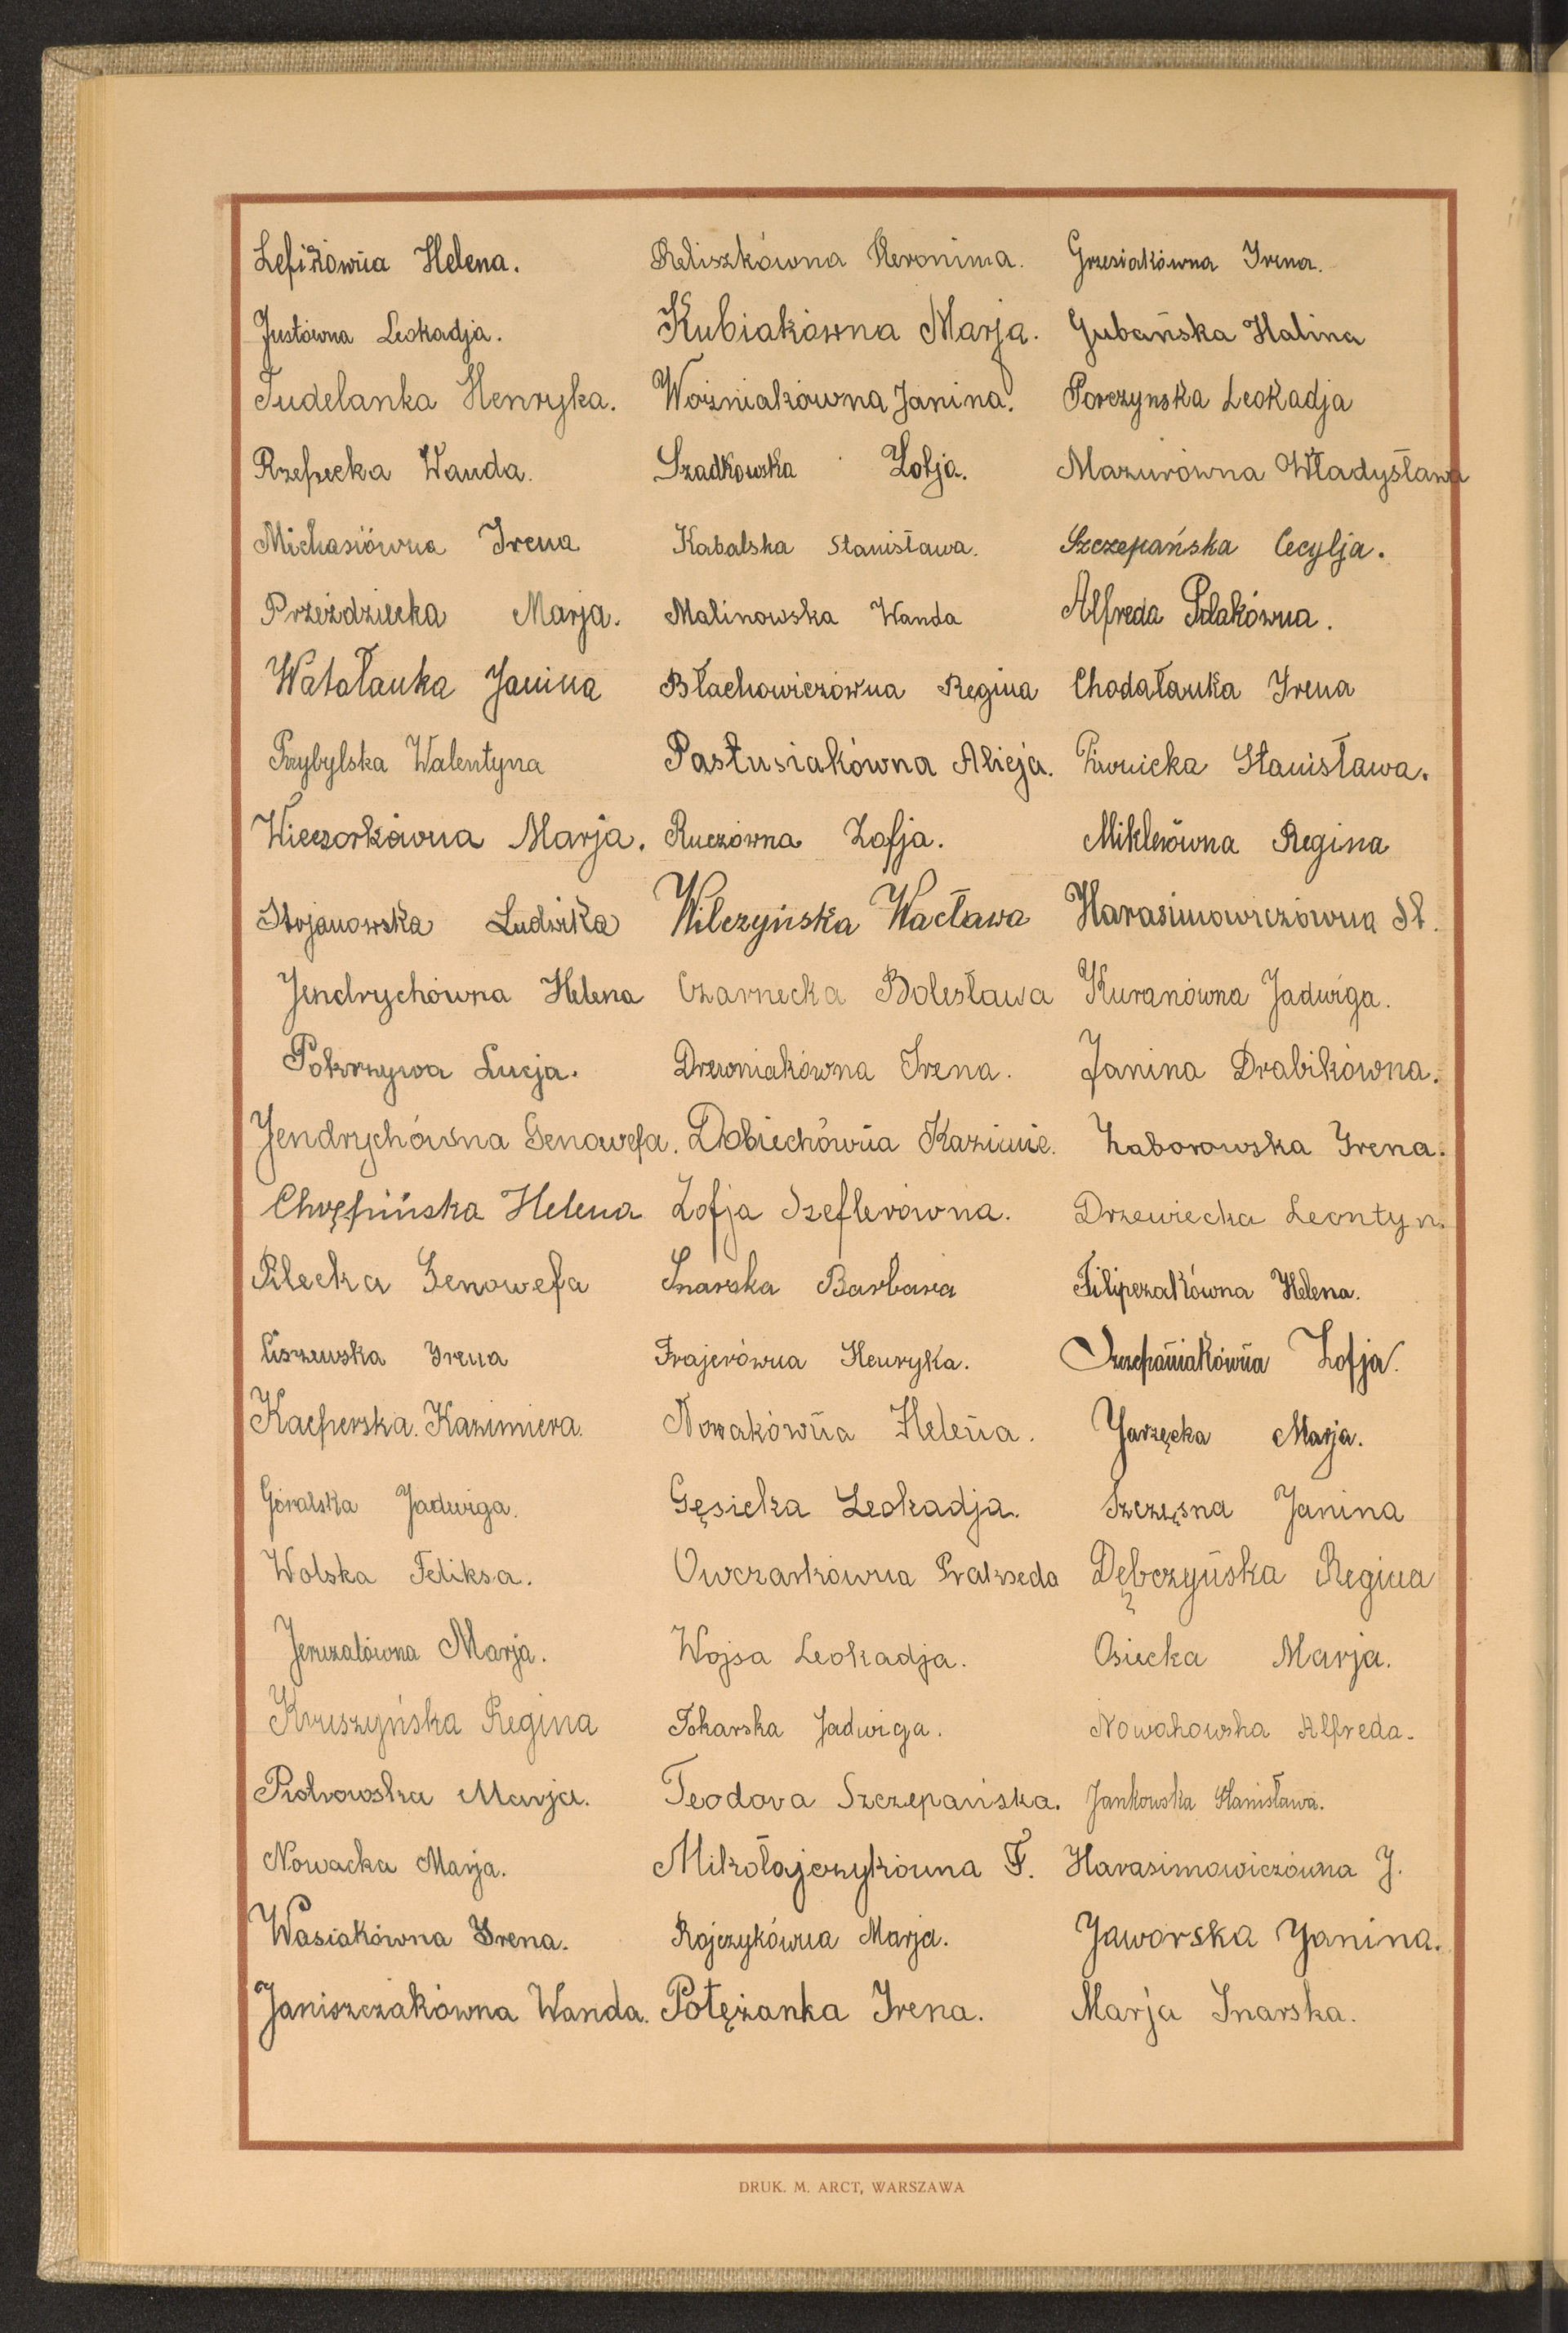 Lefikówna Helena.
Justówna Leokadja.
Tudelanka Henryka.
Rzepecka Wanda.
Michasiówna Irena
Przeździecka Marja.
Watałanka Janina
Przybylska Walentyna
Wieczorkówna Marja.
Stojanowska Ludwika
Jendrychówna Helena
Pokrzywa Lucja.
Jendrychówna Genowefa.
Chrępińska Helena
Pilecka Genowefa
Ciszewska Irena
Kacperska. Kazimiera.
Góralska Jadwiga.
Wolska Feliksa.
Marja.
Kruszyńska Regina
Piotrowska Marja.
Nowacka Marja.
Wasiakówna Irena.
Janiszczakówna Wanda.
Reliszkówna Heronima.
Kubiakówna Marja.
Woźniakówna Janina.
Szadkowska Zofja.
Kabalska Stanisława.
Malinowska Wanda
Błachowiczówna Regina
Pastusiakówna Alicja.
Ruczówna Zofja.
Wilczyńska Wacława
Czarnecka Bolesława
Drewniakówna Irena.
Dobiechówna Kazimie.
Zofja Szeflerówna.
Snarska Barbara
Frajerówna Henryka.
Nowakówna Helena.
Gęsicka Leokadja.
Owczarkówna Prakseda
Wojsa Leokadja.
Tokarska Jadwiga.
Teodora Szczepańska.
Mikołajczykówna F.
Rojczykówna Marja.
Potężanka Irena.
Grzesiakówna Irena.
Gubańska Halina
Porczynska Leokadja
Mazurówna Władysława
Szczepańska Cecylja.
Alfreda Polakówna.
Chodałanka Irena
Piwnicka Stanisława.
Miklerówna Regina
Harasimowiczówna St.
Kuranówna Jadwiga.
Janina Drabikówna.
Zaborowska Irena.
Drzewiecka Leontyn.
Filipczakówna Helena.
Szczepaniakówna Zofja.
Jarzęcka Marja.
Szczęsna Janina
Dębczyńska Regina
Osiecka Marja.
Nowakowska Alfreda.
Jankowska Stanisława.
Harasimowiczówna J.
Jaworska Janina.
Marja Snarska.
DRUK. M. ARCT, WARSZAWA